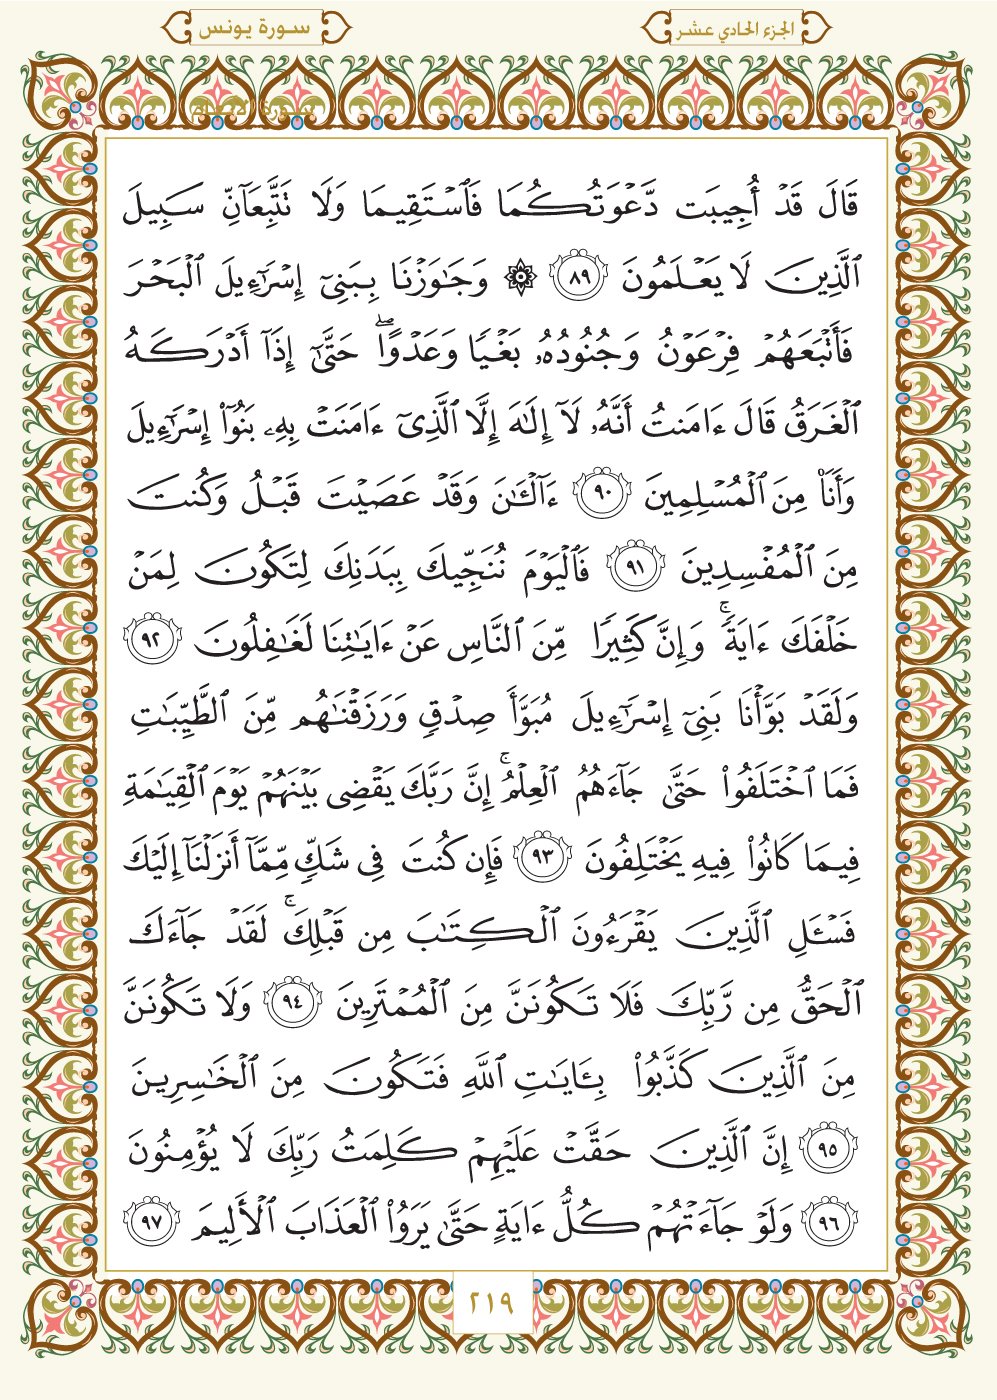 الجزء الحادي عشر
سورة يونس
قَالَ قَدۡ أُجِيبَت دَّعۡوَتُكُمَا فَٱسۡتَقِيمَا وَلَا تَتَّبِعَآنِّ سَبِيلَ
ٱلَّذِينَ لَا يَعۡلَمُونَ ٨٩ ۞ وَجَٰوَزۡنَا بِبَنِيٓ إِسۡرَٰٓءِيلَ ٱلۡبَحۡرَ
فَأَتۡبَعَهُمۡ فِرۡعَوۡنُ وَجُنُودُهُۥ بَغۡيٗا وَعَدۡوًاۖ حَتَّىٰٓ إِذَآ أَدۡرَكَهُ
ٱلۡغَرَقُ قَالَ ءَامَنتُ أَنَّهُۥ لَآ إِلَٰهَ إِلَّا ٱلَّذِيٓ ءَامَنَتۡ بِهِۦ بَنُوٓاْ إِسۡرَٰٓءِيلَ
وَأَنَا۠ مِنَ ٱلۡمُسۡلِمِينَ ٩٠ ءَآلۡـَٰٔنَ وَقَدۡ عَصَيۡتَ قَبۡلُ وَكُنتَ
مِنَ ٱلۡمُفۡسِدِينَ ٩١ فَٱلۡيَوۡمَ نُنَجِّيكَ بِبَدَنِكَ لِتَكُونَ لِمَنۡ
خَلۡفَكَ ءَايَةٗۚ وَإِنَّ كَثِيرٗا مِّنَ ٱلنَّاسِ عَنۡ ءَايَٰتِنَا لَغَٰفِلُونَ ٩٢
وَلَقَدۡ بَوَّأۡنَا بَنِيٓ إِسۡرَٰٓءِيلَ مُبَوَّأَ صِدۡقٖ وَرَزَقۡنَٰهُم مِّنَ ٱلطَّيِّبَٰتِ
فَمَا ٱخۡتَلَفُواْ حَتَّىٰ جَآءَهُمُ ٱلۡعِلۡمُۚ إِنَّ رَبَّكَ يَقۡضِي بَيۡنَهُمۡ يَوۡمَ ٱلۡقِيَٰمَةِ
فِيمَا كَانُواْ فِيهِ يَخۡتَلِفُونَ ٩٣ فَإِن كُنتَ فِي شَكّٖ مِّمَّآ أَنزَلۡنَآ إِلَيۡكَ
فَسۡـَٔلِ ٱلَّذِينَ يَقۡرَءُونَ ٱلۡكِتَٰبَ مِن قَبۡلِكَۚ لَقَدۡ جَآءَكَ
ٱلۡحَقُّ مِن رَّبِّكَ فَلَا تَكُونَنَّ مِنَ ٱلۡمُمۡتَرِينَ ٩٤ وَلَا تَكُونَنَّ
مِنَ ٱلَّذِينَ كَذَّبُواْ بِـَٔايَٰتِ ٱللَّهِ فَتَكُونَ مِنَ ٱلۡخَٰسِرِينَ
٩٥ إِنَّ ٱلَّذِينَ حَقَّتۡ عَلَيۡهِمۡ كَلِمَتُ رَبِّكَ لَا يُؤۡمِنُونَ
٩٦ وَلَوۡ جَآءَتۡهُمۡ كُلُّ ءَايَةٍ حَتَّىٰ يَرَوُاْ ٱلۡعَذَابَ ٱلۡأَلِيمَ ٩٧
٢١٩